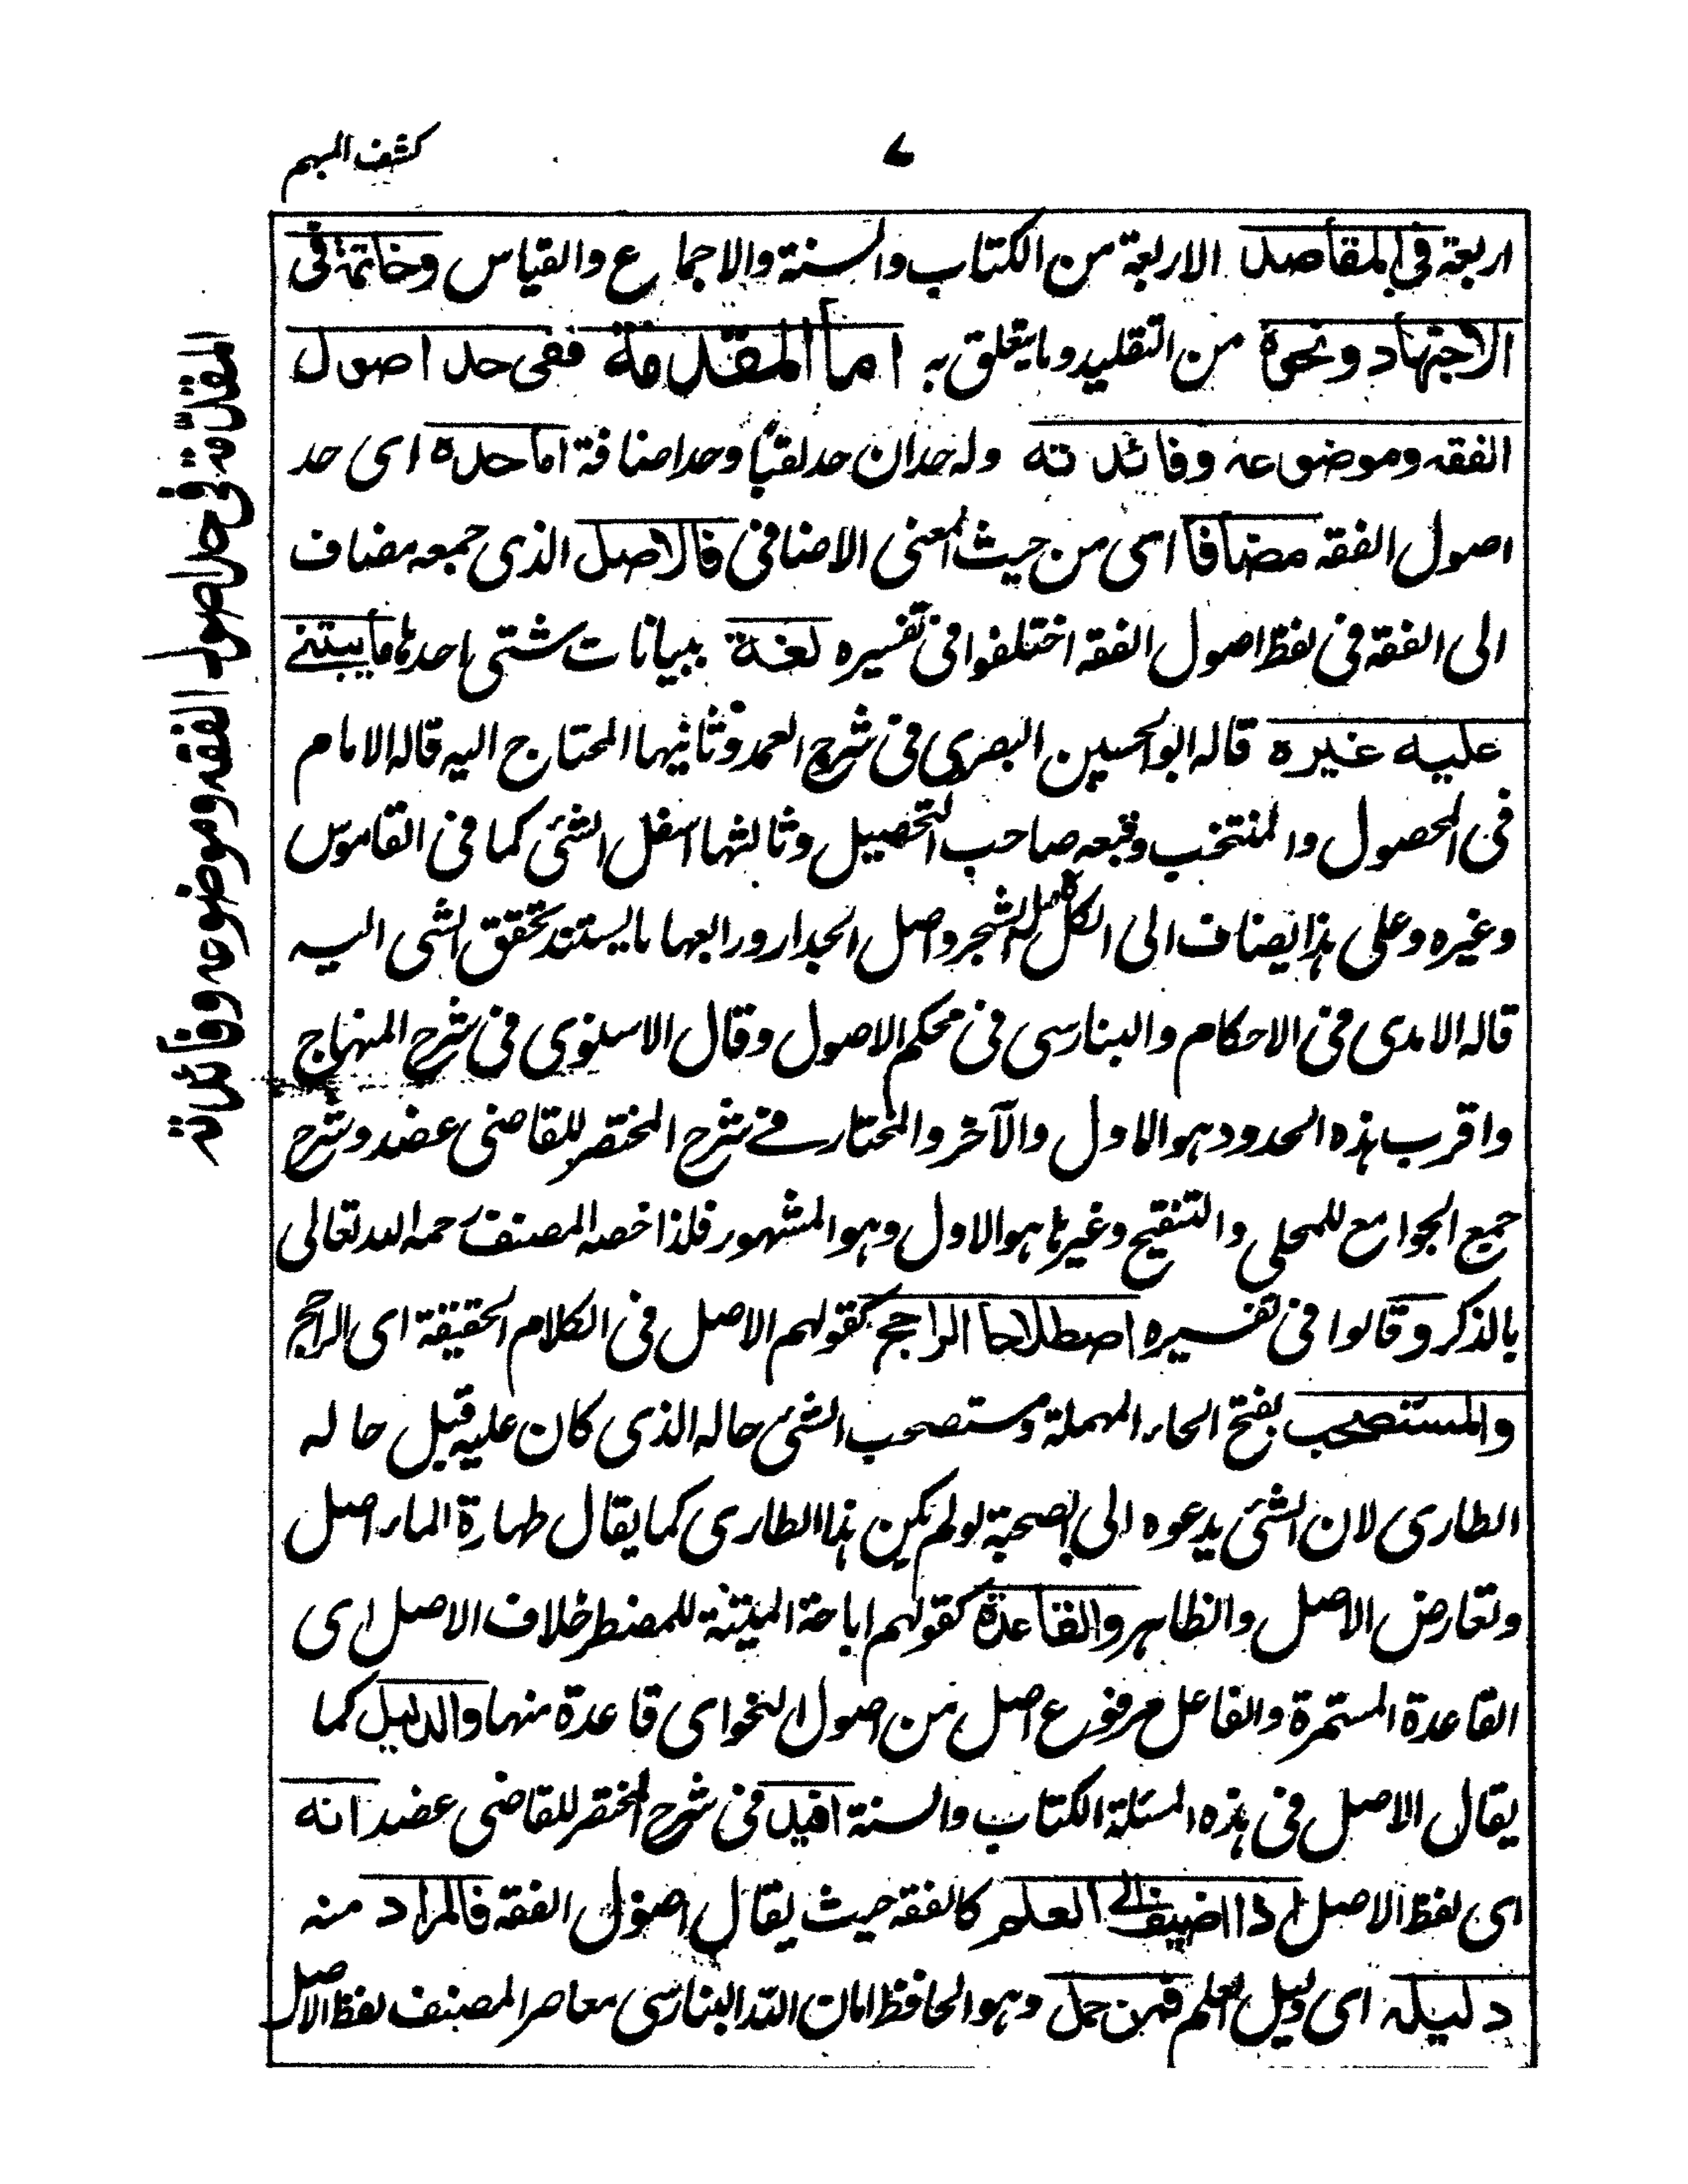 ٧
كشف المبهم
اربعة فى المقاصد الاربعة من الكتاب والسنة والاجماع والقياس وخاتمة فى
الاجتهاد ونحوه من التقليد وما يتعلق به اما المقدمة ففى حد اصول
الفقه وموضوعه وفائدته وله حدان حد لقبا وحد اضافة اما حده اى حد
اصول الفقه مضافا اى من حيث المعنى الاضافى فالاصل الذى جمعه مضاف
الى الفقه فى لفظ اصول الفقه اختلفوا فى تفسيره لغة ببيانات شتى احدها ما يبتنے
عليه غيره قاله ابو الحسين البصرى فى شرح العمد وثانيها المحتاج اليه قاله الامام
فى المحصول والمنتخب وتبعه صاحب التحصيل وثالثها اسفل الشئ كما فى القاموس
وغيره وعلى هذا يضاف الى الكل كاصل الشجر واصل الجدار ورابعها ما يستند تحقق الشى اليه
قاله الامدى فى الاحكام والبنارسى فى محكم الاصول وقال الاسنوى فى شرح المنهاج
واقرب هذه الحدود هو الاول والآخر والمختار فے شرح المختصر للقاضى عضد وشرح
جمع الجوامع للمحلى والتنقيح وغيرها هو الاول وهو المشهور فلذا خصه المصنف رحمه الله تعالى
بالذكر وقالوا فى تفسيره اصطلاحا الراجح كقولهم الاصل فى الكلام الحقيقة اى الراجح
والمستصحب بفتح الحاء المهملة ومستصحب الشئ حاله الذى كان عليه قبل حاله
الطارى لان الشئ يدعوه الى الصحبة لو لم يكن هذا الطارى كما يقال طهارة الماء اصل
وتعارض الاصل والظاهر والقاعدة كقولهم اباحة الميتة للمضطر خلاف الاصل اى
القاعدة المستمرة والفاعل مرفوع اصل من اصول النحو اى قاعدة منها والدليل كما
يقال الاصل فى هذه المسئلة الكتاب والسنة افيد فى شرح المختصر للقاضى عضد انه
اى لفظ الاصل اذا اضيف الے العلم كالفقه حيث يقال اصول الفقه فالمراد منه
دليله اى دليل العلم فمن حمل وهو الحافظ امان الله البنارسى معاصر المصنف لفظ الاصل
المقدمة فى حد اصول الفقه وموضوعه وفائدته